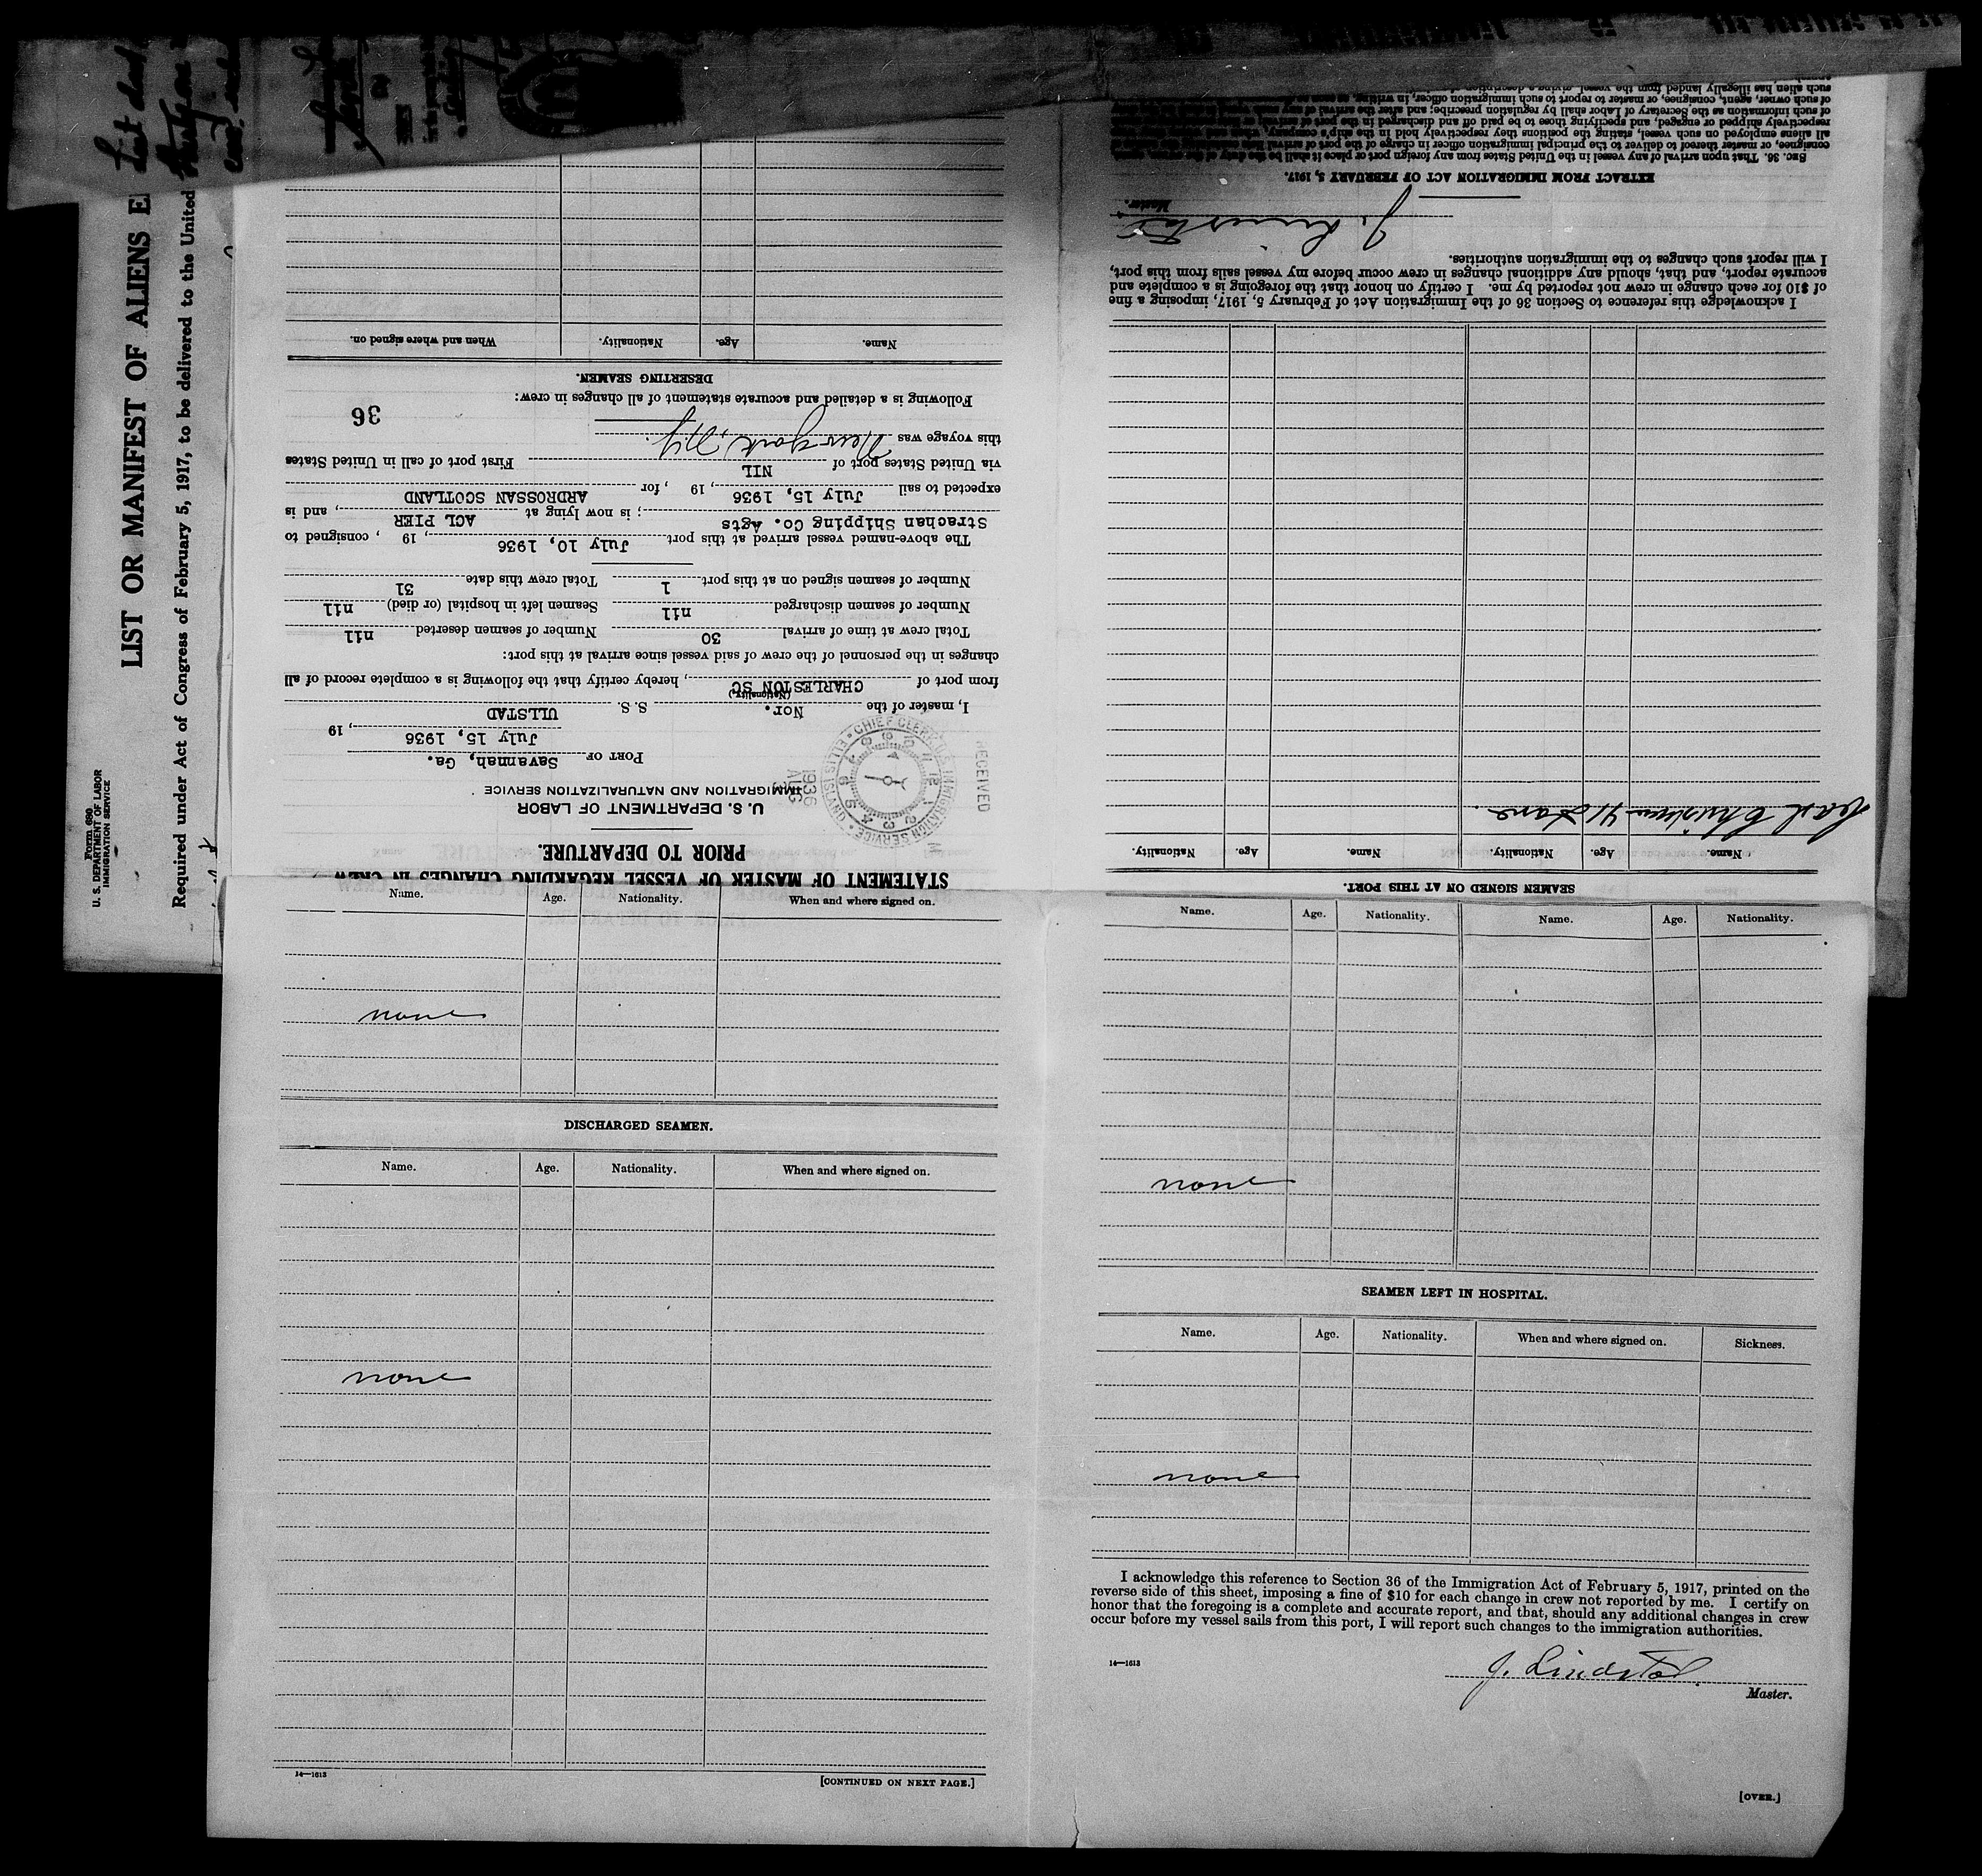 Form 680
U. S. DEPARTMENT OF LABOR
IMMIGRATION SERVICE
LIST OR MANIFEST OF ALIENS E
Required under Act of Congress of February 5, 1917, to be delivered to the United
STATEMENT OF MASTER OF VESSEL REGARDING CHANGES IN CREW
PRIOR TO DEPARTURE.
U. S. DEPARTMENT OF LABOR
IMMIGRATION AND NATURALIZATION SERVICE
RECEIVED
1936 AUG
CHIEF CLERK U.S. IMMIGRATION SERVICE • ELLIS ISLAND •
PORT OF Savannah, Ga.
July 15, 1936, 19
I, master of the Nor. S. S. ULLSTAD
(Nationality)
from port of CHARLESTON SC, hereby certify that the following is a complete record of all
changes in the personnel of the crew of said vessel since arrival at this port:
Total crew at time of arrival 30 Number of seamen deserted nil
Number of seamen discharged nil Seamen left in hospital (or died) nil
Number of seamen signed on at this port 1 Total crew this date 31
The above-named vessel arrived at this port July 10, 1936, 19 , consigned to
Strachan Shipping Co. Agts ; is now lying at ACL PIER, and is
expected to sail July 15, 1936, 19 , for ARDROSSAN SCOTLAND
via United States port of NIL First port of call in United States
this voyage was New York, N.Y.
Following is a detailed and accurate statement of all changes in crew:
36
DESERTING SEAMEN.
Name. Age. Nationality. When and where signed on.
SEAMEN SIGNED ON AT THIS PORT.
Name. Age. Nationality. Name. Age. Nationality.
41 Dane
I acknowledge this reference to Section 36 of the Immigration Act of February 5, 1917, imposing a fine
of $10 for each change in crew not reported by me. I certify on honor that the foregoing is a complete and
accurate report, and that, should any additional changes in crew occur before my vessel sails from this port,
I will report such changes to the immigration authorities.
J. Lindstad
Master.
EXTRACT FROM IMMIGRATION ACT OF FEBRUARY 5, 1917.
SEC. 36. That upon arrival of any vessel in the United States from any foreign port or place it shall be the duty of the
consignee, or master thereof to deliver to the principal immigration officer in charge of the port of arrival lists
all aliens employed on such vessel, stating the positions they respectively hold in the ship's company, when and
respectively shipped or engaged, and specifying those to be paid off and discharged in the port of arrival
of such information as the Secretary of Labor shall by regulation prescribe; and after the arrival of any
of such owner, agent, consignee, or master to report to such immigration officer, in writing, as soon
such alien has illegally landed from the vessel, giving a description
Name. Age. Nationality. When and where signed on.
none
DISCHARGED SEAMEN.
Name. Age. Nationality. When and where signed on.
none
14—1613
[CONTINUED ON NEXT PAGE.]
Name. Age. Nationality. Name. Age. Nationality.
none
SEAMEN LEFT IN HOSPITAL.
Name. Age. Nationality. When and where signed on. Sickness.
none
I acknowledge this reference to Section 36 of the Immigration Act of February 5, 1917, printed on the
reverse side of this sheet, imposing a fine of $10 for each change in crew not reported by me. I certify on
honor that the foregoing is a complete and accurate report, and that, should any additional changes in crew
occur before my vessel sails from this port, I will report such changes to the immigration authorities.
14—1613
J. Lindstad
Master.
[OVER.]